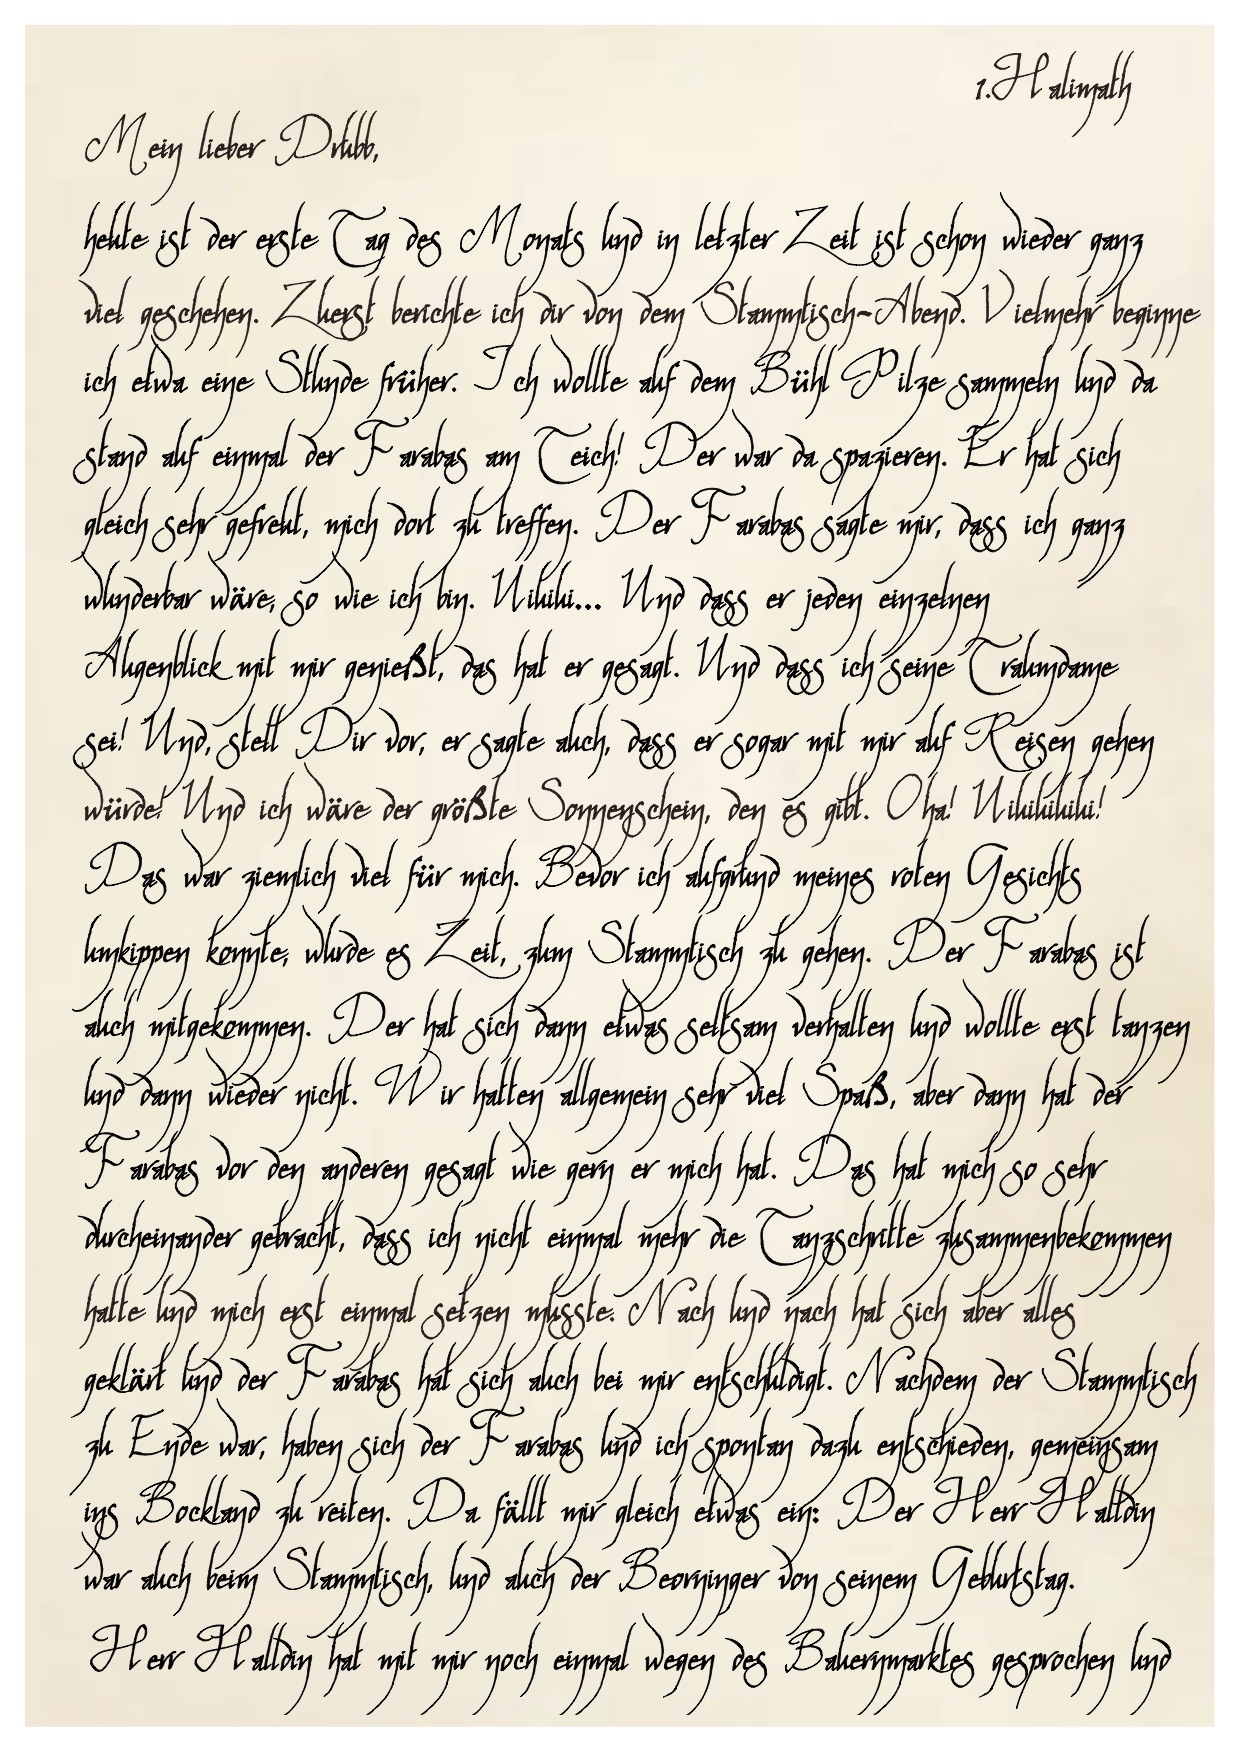 1.Halimath
Mein lieber Drubb,
heute ist der erste Tag des Monats und in letzter Zeit ist schon wieder ganz
viel geschehen. Zuerst berichte ich dir von dem Stammtisch-Abend. Vielmehr beginne
ich etwa eine Stunde früher. Ich wollte auf dem Bühl Pilze sammeln und da
stand auf einmal der Farabas am Teich! Der war da spazieren. Er hat sich
gleich sehr gefreut, mich dort zu treffen. Der Farabas sagte mir, dass ich ganz
wunderbar wäre, so wie ich bin. Uihihi... Und dass er jeden einzelnen
Augenblick mit mir genießt, das hat er gesagt. Und dass ich seine Traumdame
sei! Und, stell Dir vor, er sagte auch, dass er sogar mit mir auf Reisen gehen
würde! Und ich wäre der größte Sonnenschein, den es gibt. Oha! Uihihihihi!
Das war ziemlich viel für mich. Bevor ich aufgrund meines roten Gesichts
umkippen konnte, wurde es Zeit, zum Stammtisch zu gehen. Der Farabas ist
auch mitgekommen. Der hat sich dann etwas seltsam verhalten und wollte erst tanzen
und dann wieder nicht. Wir hatten allgemein sehr viel Spaß, aber dann hat der
Farabas vor den anderen gesagt wie gern er mich hat. Das hat mich so sehr
durcheinander gebracht, dass ich nicht einmal mehr die Tanzschritte zusammenbekommen
hatte und mich erst einmal setzen musste. Nach und nach hat sich aber alles
geklärt und der Farabas hat sich auch bei mir entschuldigt. Nachdem der Stammtisch
zu Ende war, haben sich der Farabas und ich spontan dazu entschieden, gemeinsam
ins Bockland zu reiten. Da fällt mir gleich etwas ein: Der Herr Haldin
war auch beim Stammtisch, und auch der Beorninger von seinem Geburtstag.
Herr Haldin hat mit mir noch einmal wegen des Bauernmarktes gesprochen und